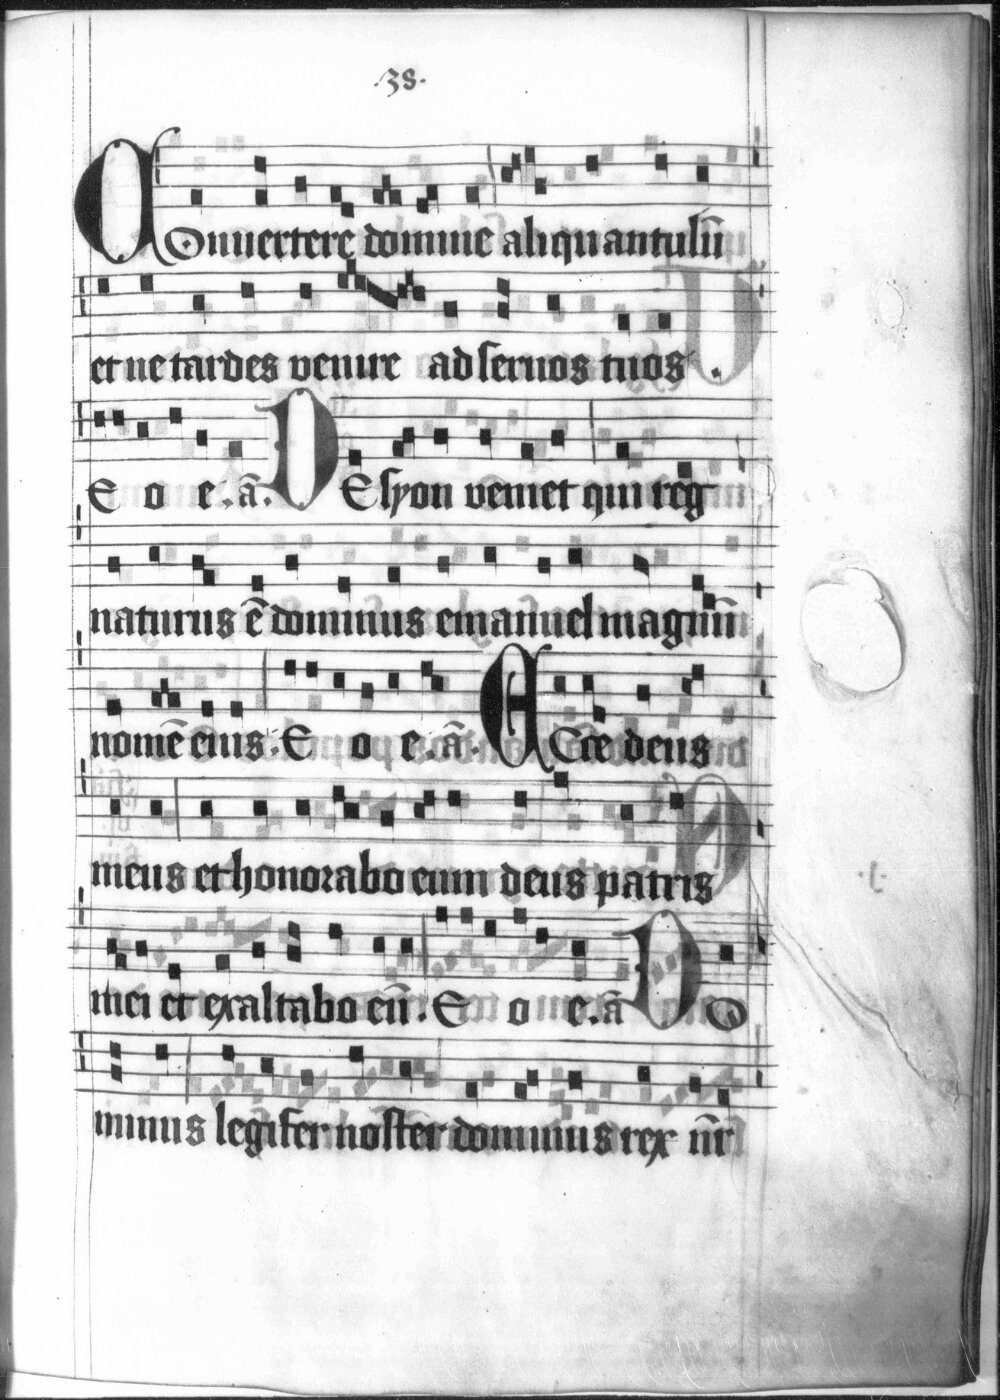 .38.
Conuertere domine aliquantulū
et ne tardes venire ad seruos tuos
E o e . ā . DE syon veniet qui reg
naturus ē dominus emanuel magnū
nomē eius . E o e . ā . ECce deus
meus et honorabo eum deus patris
mei et exaltabo eū . E o e . ā DO
minus legifer noster dominus rex nr̄